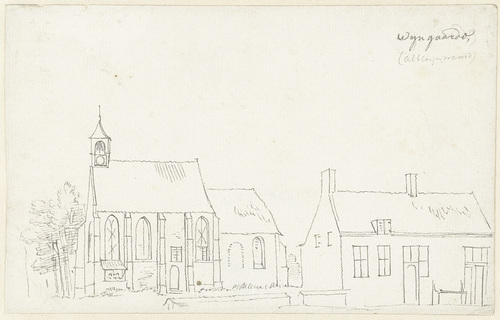 Wyngaarden,
(Alblasserwaard)